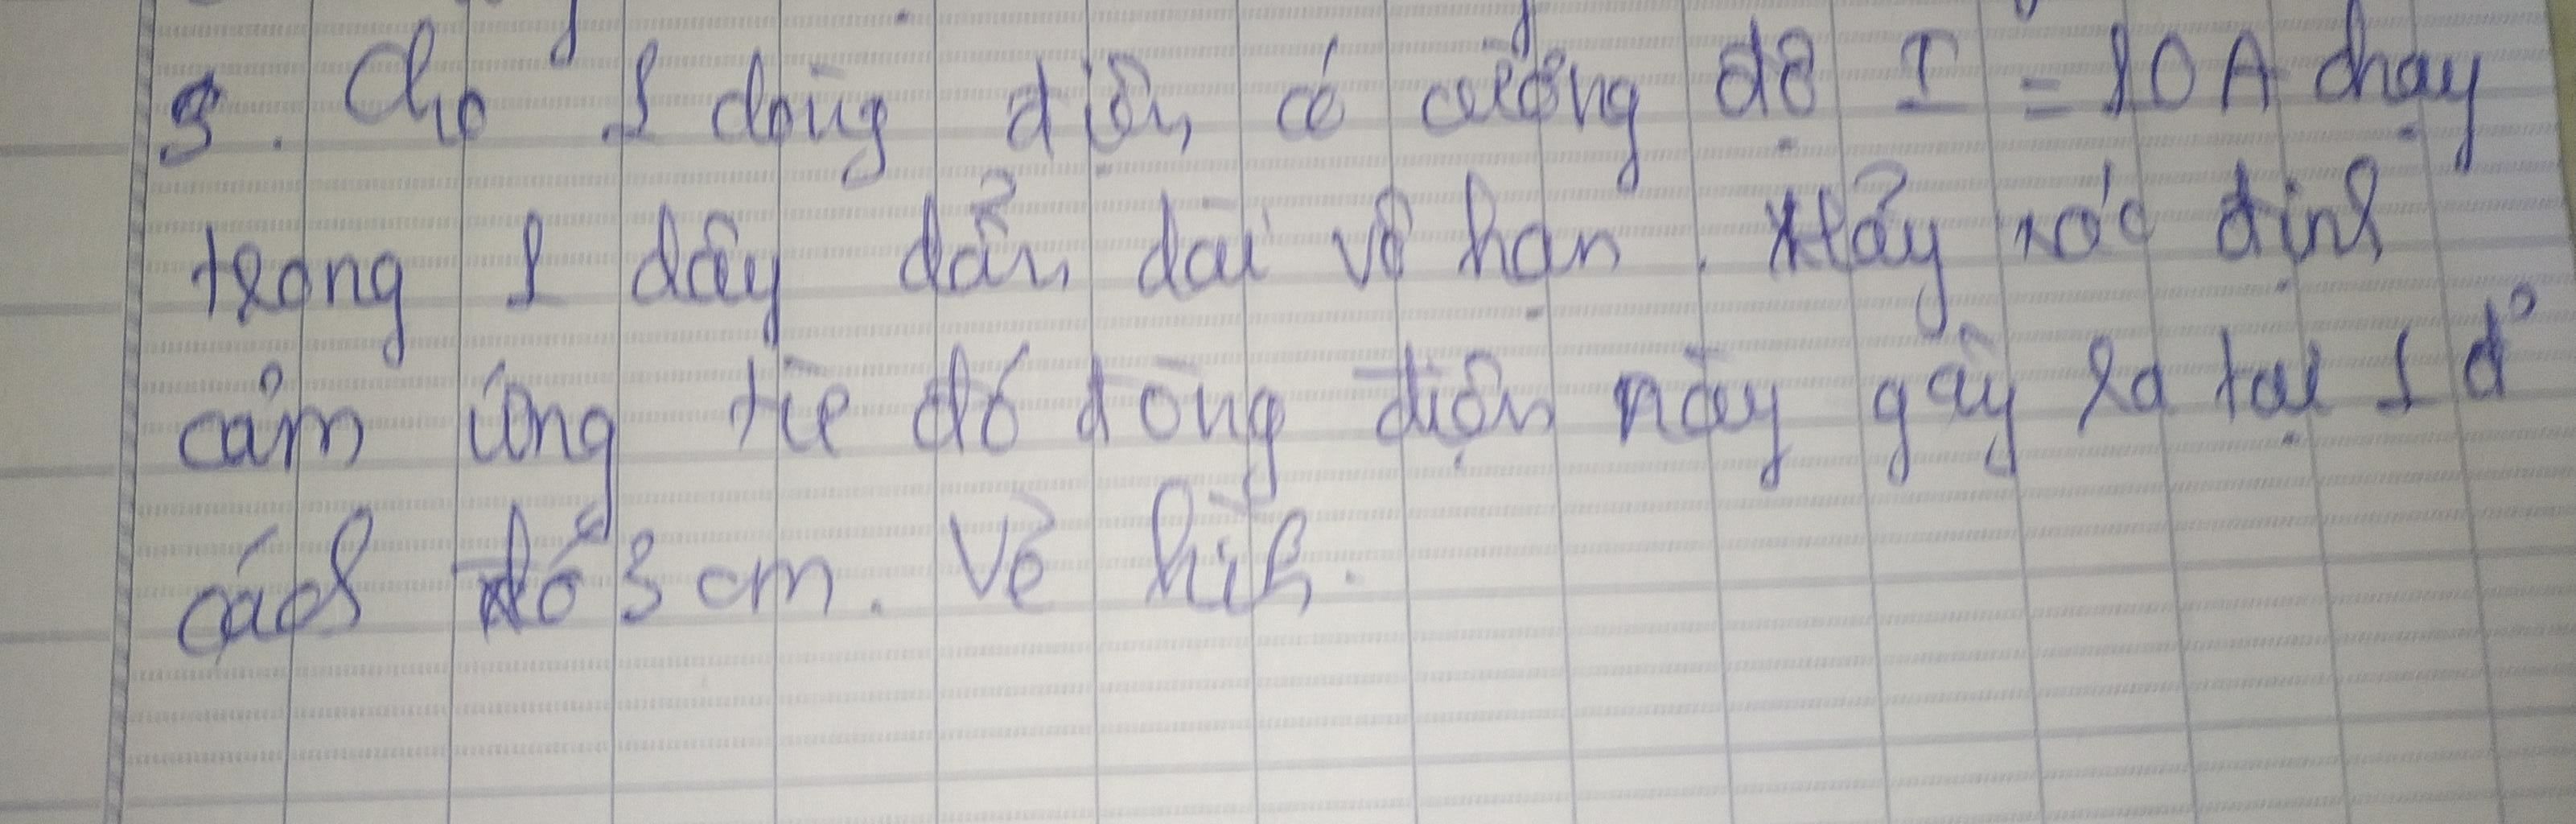 3. Cho 1 dòng điện có cường độ I = 10A chạy
trong 1 dây dẫn dài vô hạn. Hãy xác định
cảm ứng từ do dòng điện này gây ra tại 1 đ°
cách đó 3 cm. Vẽ hình.